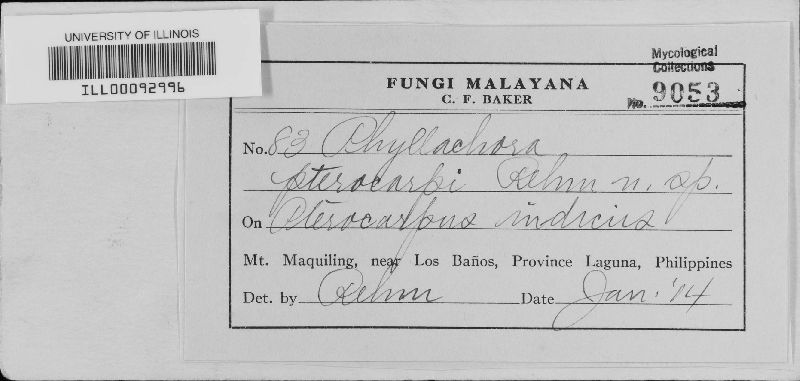 UNIVERSITY OF ILLINOIS
ILL00092996
Mycological
Collections
No. 9053
FUNGI MALAYANA
C. F. BAKER
No. 83 Phyllachora
pterocarpi Rehm n. sp.
On Pterocarpus indicus
Mt. Maquiling, near Los Baños, Province Laguna, Philippines
Det. by Rehm Date Jan. '14